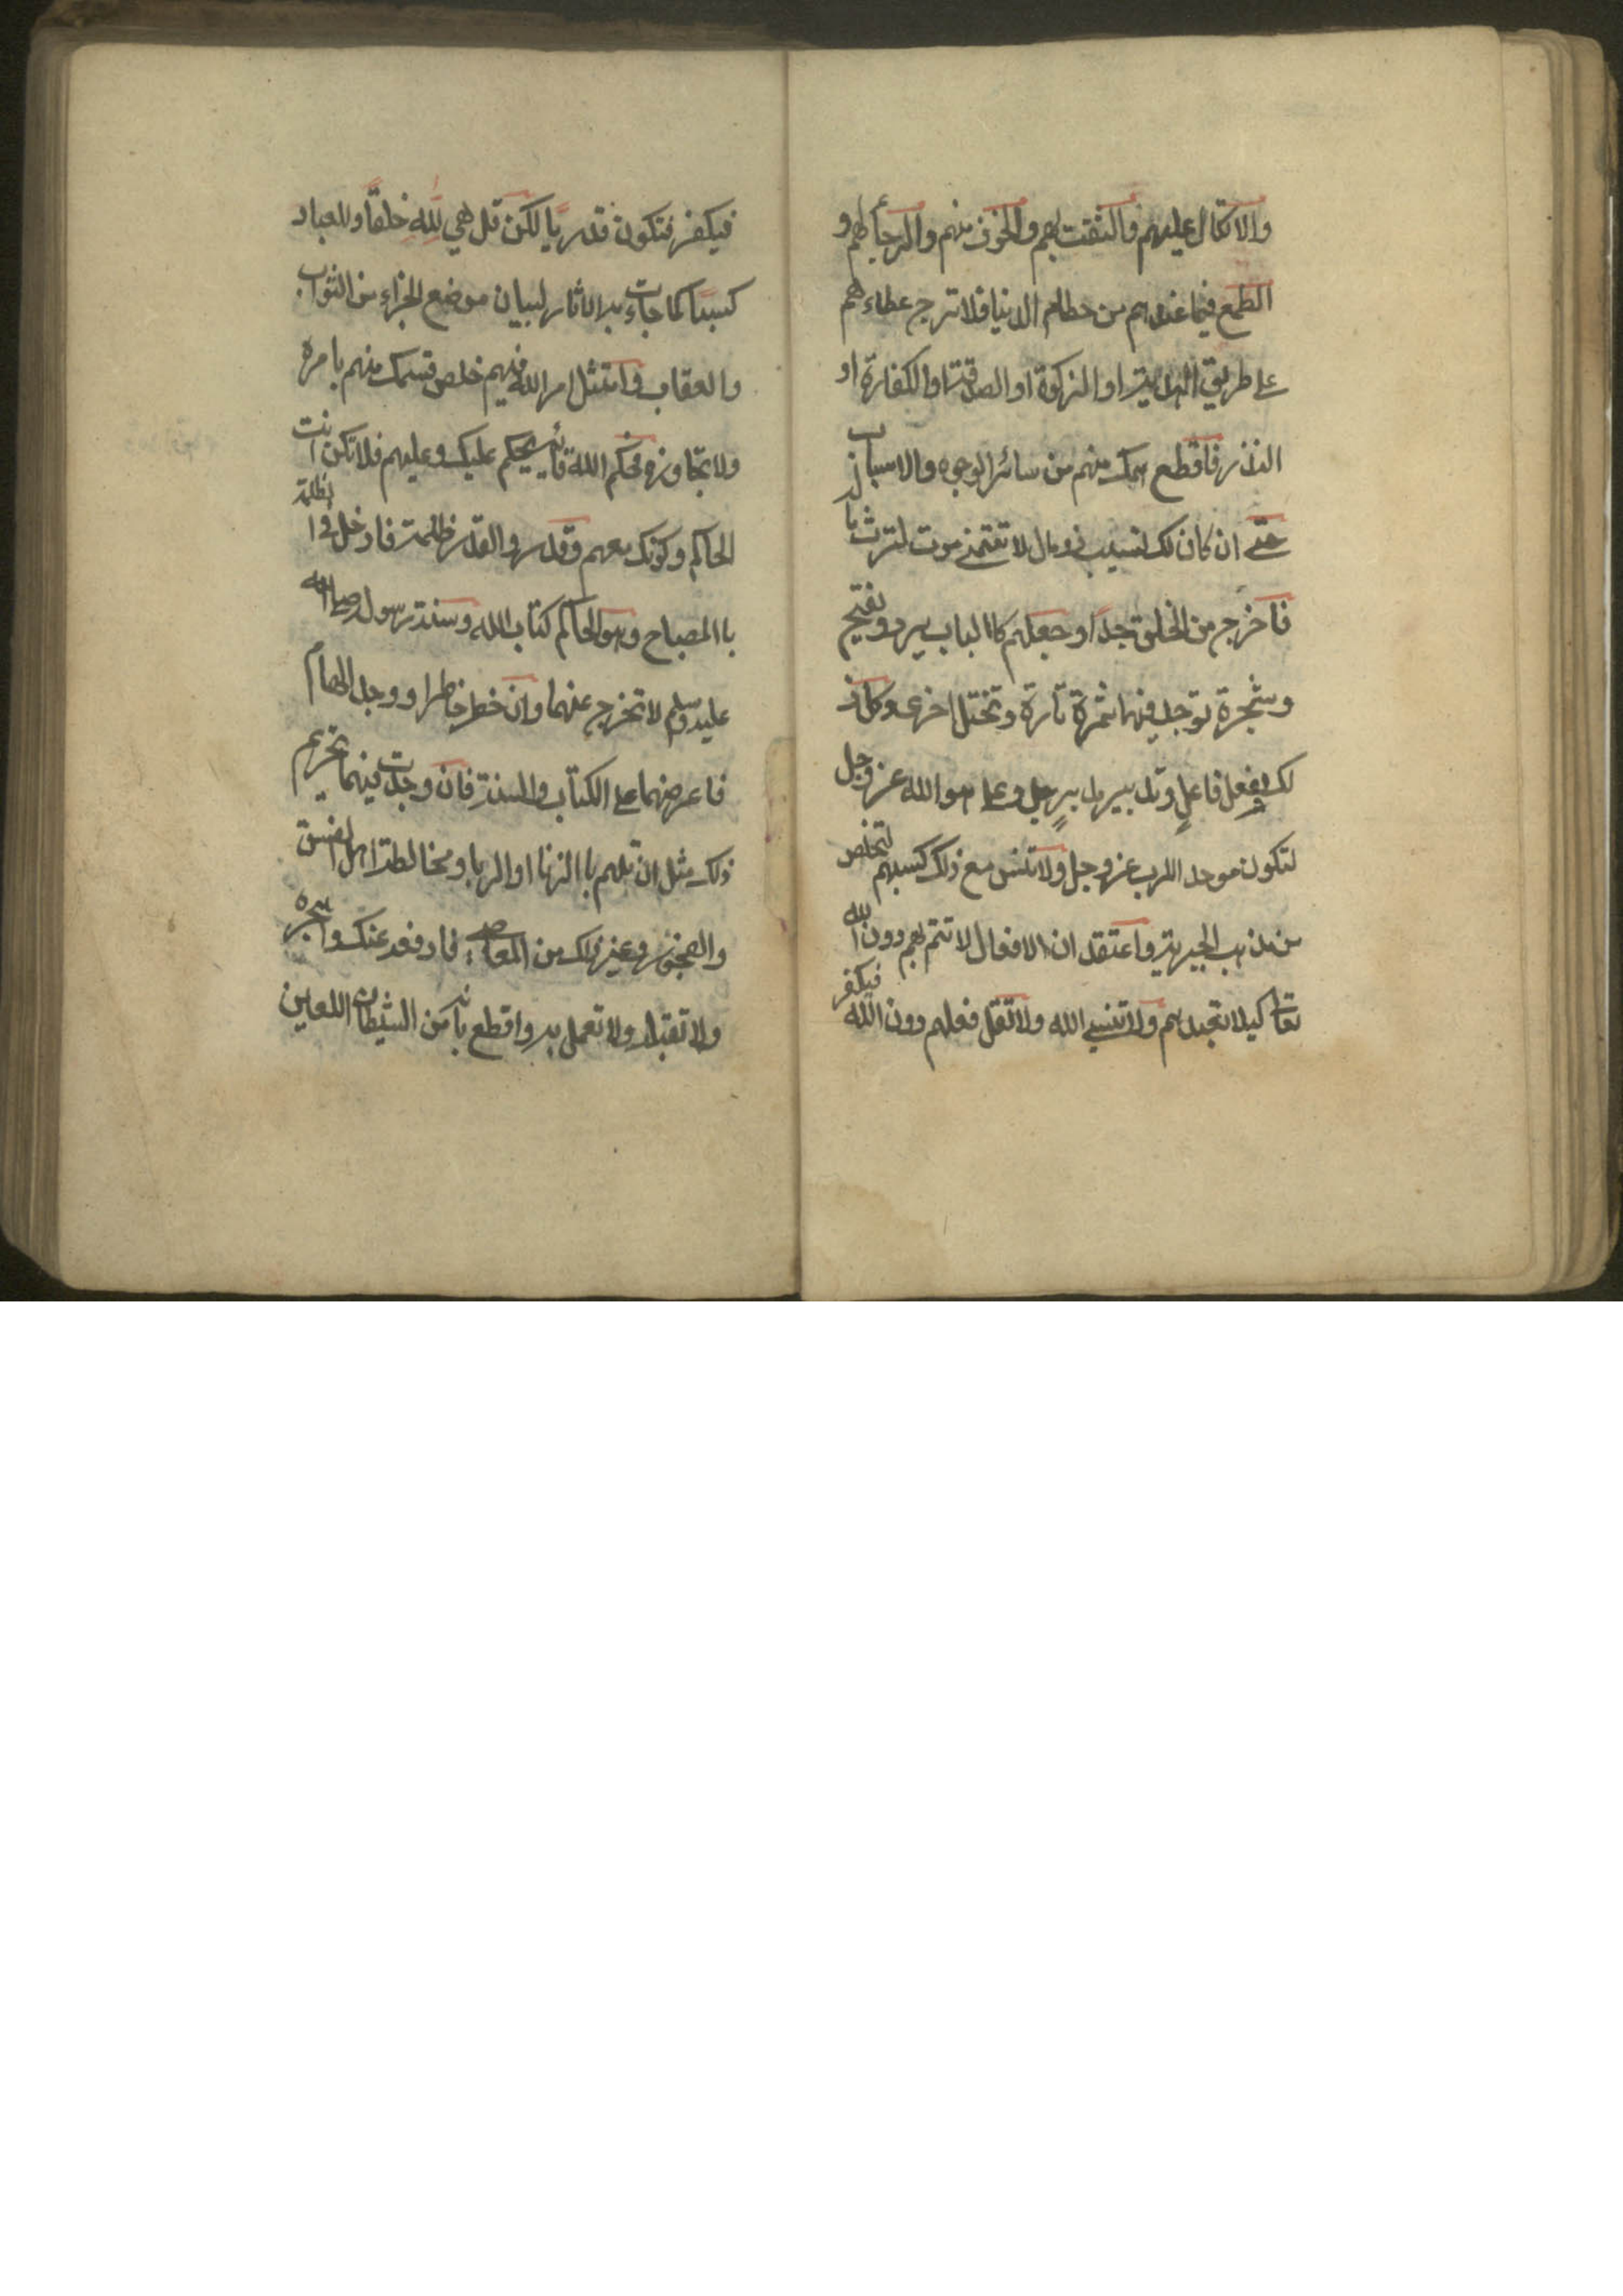 والاتكال عليهم والثقت بهم والخوف منهم والرجأ لهم و
الطمع فيما عندهم من حطام الدنيا فلا ترج عطاء هم
على طريق الهدية او الزكوة او الصدقة او الكفارة او
النذر فاقطع همك منهم من سائر الوجوه والاسباب
حتى ان كان لك نسيب ذو مال لا تتمنى موت لترث ما
فاخرج من الخلق جدا وجعلهم كاالباب يرد ويفتح
وشجرة توجد فيها ثمرة تارة وتختل اخرى وكل ذ
لك بفعل فاعل وتدبير مدبر جل وعلا هو الله عز وجل
لتكون موحد الرب عز وجل ولا تنس مع ذلك كسبهم لتخلص
من مذهب الجبرية واعتقد ان الافعال لا تتم لهم دون الله
تعالى كيلا تعبدهم ولا تنسى الله ولا تقل فعلهم دون الله فيكفر
فيكفر فتكون قدريا لكن قل هي لله خلقا وللعباد
كسبا كما جاءت به الاثار لبيان موضع الجزاء من الثواب
والعقاب وامتثل امر الله فيهم خلص قسمك منهم بامره
ولا تجاوزه فحكم الله قائم يحكم عليك وعليهم فلا تكن انت
الحاكم وكونك معهم وقدر والقدر ظلمة فادخل فى الظلمة
باالمصباح وهو الحاكم كتاب الله وسنة رسول صلى الله
عليه وسلم لا تخرج عنهما وان خطر خاطر او وجد الهام
فاعرضهما على الكتاب والسنة فان وجدت فيهما تحريم
ذلك مثل ان تلهم باالزنا او الربا ومخالطة اهل الفسق
والفجور وغير ذلك من المعاصى فادفعه عنك واهجره
ولا تقبله ولا تعمل به واقطع بانه من الشيطان اللعين